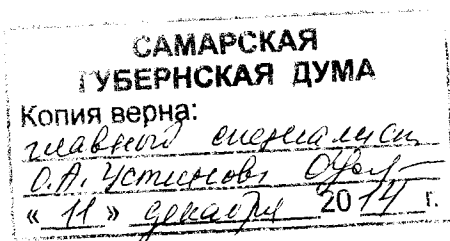 САМАРСКАЯ
ГУБЕРНСКАЯ ДУМА
Копия верна:
главный специалист
О.А. Устинова
« 11 » декабря 2014 г.